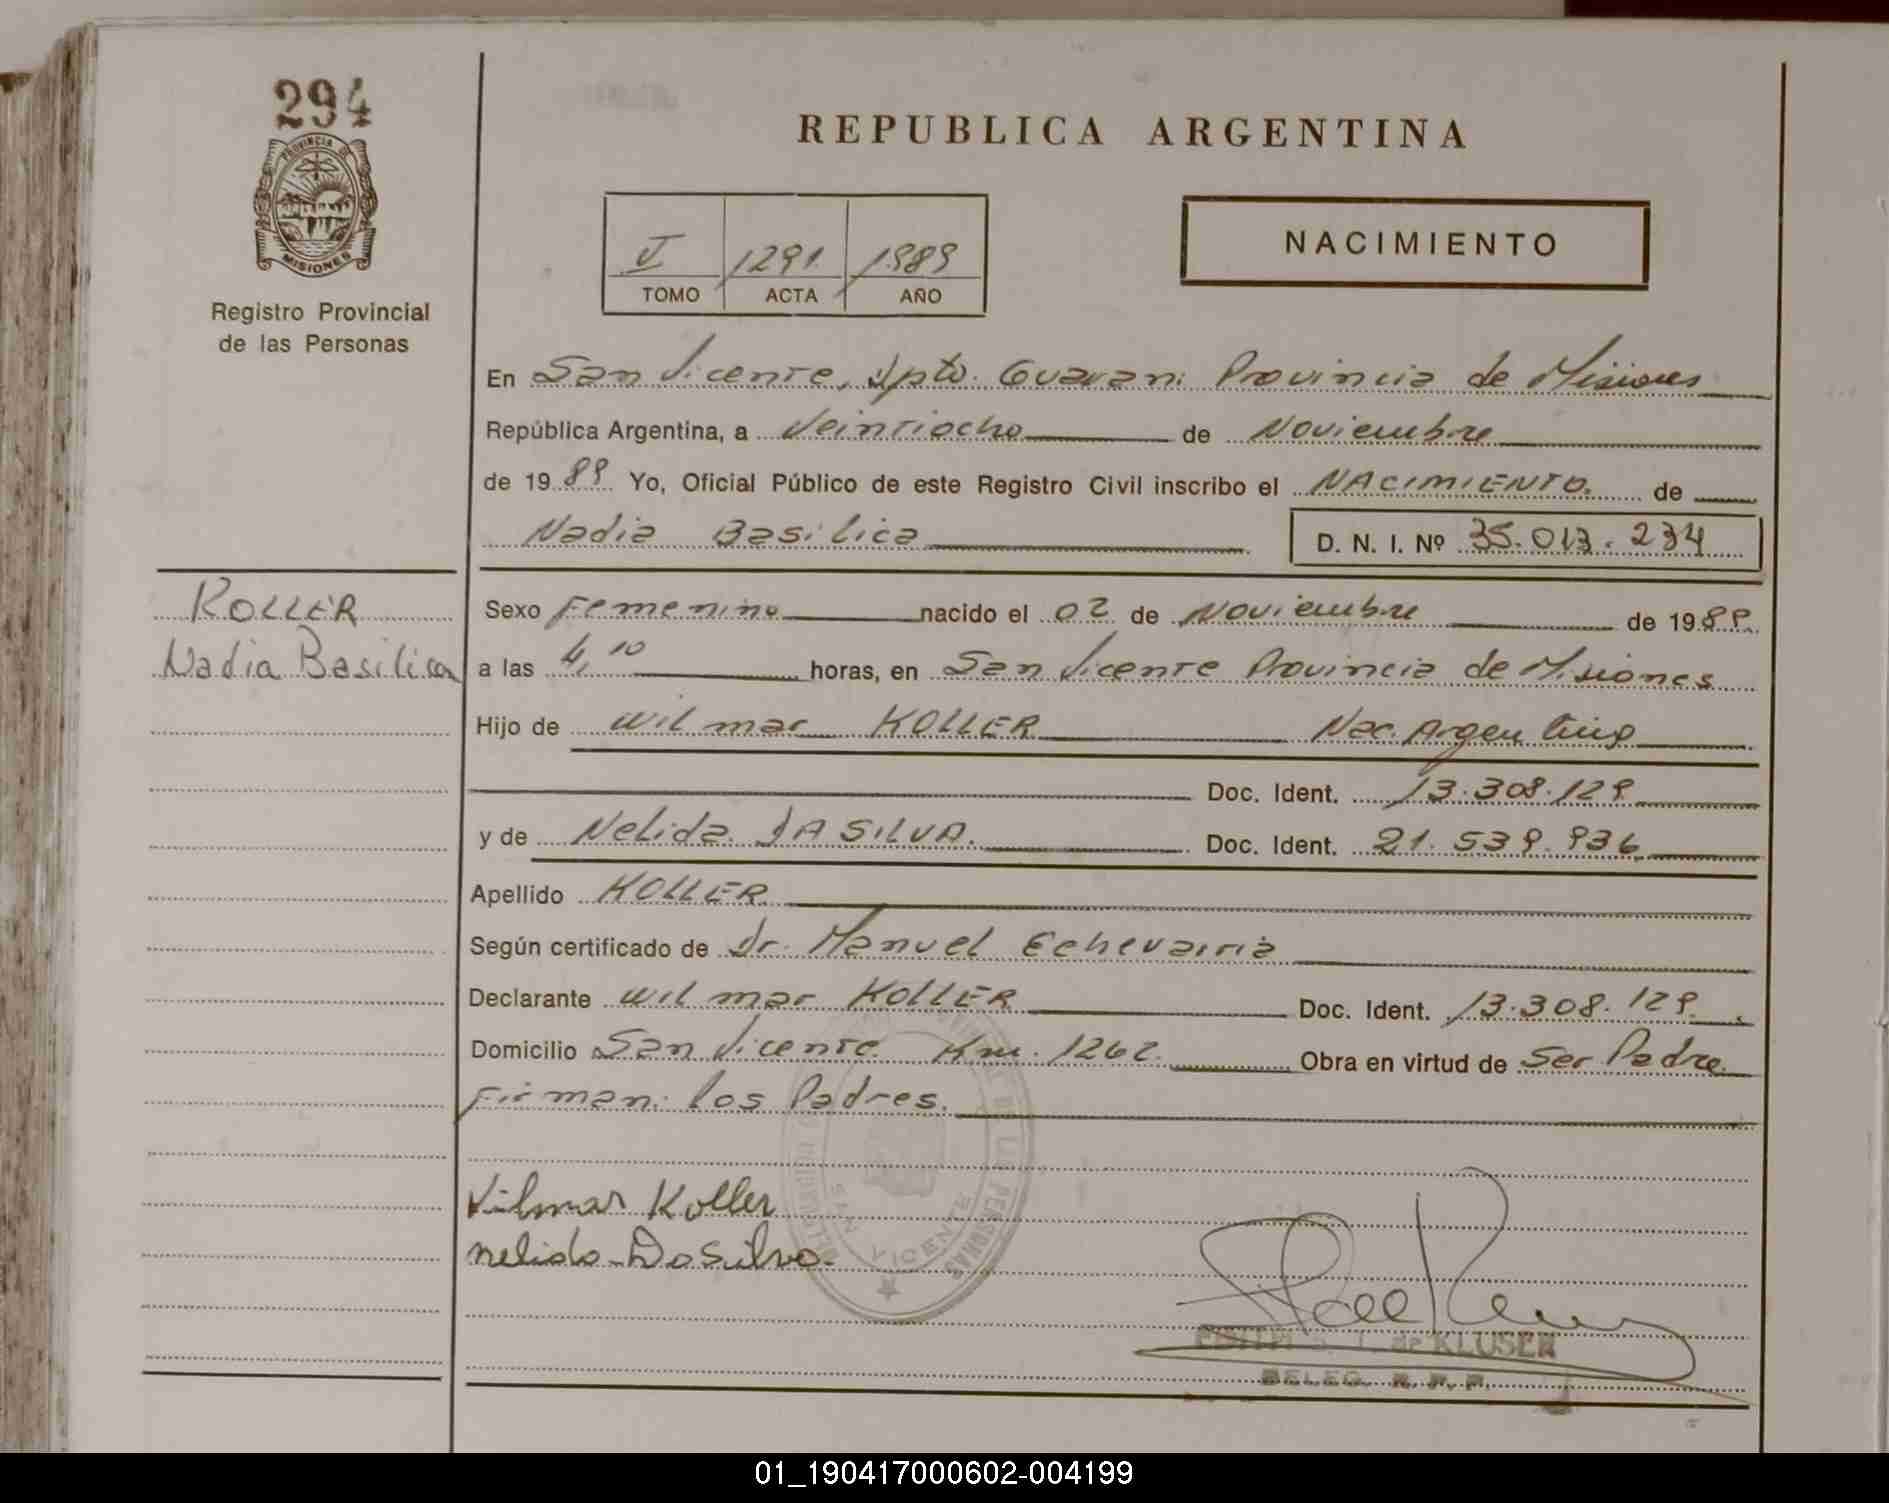 294
PROVINCIA DE
MISIONES
Registro Provincial
de las Personas
REPUBLICA ARGENTINA
NACIMIENTO
1291 1989
TOMO ACTA AÑO
En San Vicente, Dpto. Guarani Provincia de Misiones
República Argentina, a Veintiocho de Noviembre
de 1989 Yo, Oficial Público de este Registro Civil inscribo el NACIMIENTO. de
Nadia Basilica D. N. I. Nº 35.013.234
KOLLER
Nadia Basilica
Sexo Femenino nacido el 02 de Noviembre de 1989.
a las 4,10 horas, en San Vicente Provincia de Misiones
Hijo de Wilmar KOLLER Nac. Argentino
Doc. Ident. 13.308.129
y de Nelida DA SILVA. Doc. Ident. 21.539.936
Apellido KOLLER
Según certificado de Dr. Manuel Echevarria
Declarante Wilmar KOLLER Doc. Ident. 13.308.129.
Domicilio San Vicente Km. 1262. Obra en virtud de Ser Padre.
Firman: los Padres.
Vilmar Koller
Nelida Da Silva.
SAN VICENTE
DE LAS PERSONAS
de KLUSEN
DELEG. R. P. P.
01_190417000602-004199